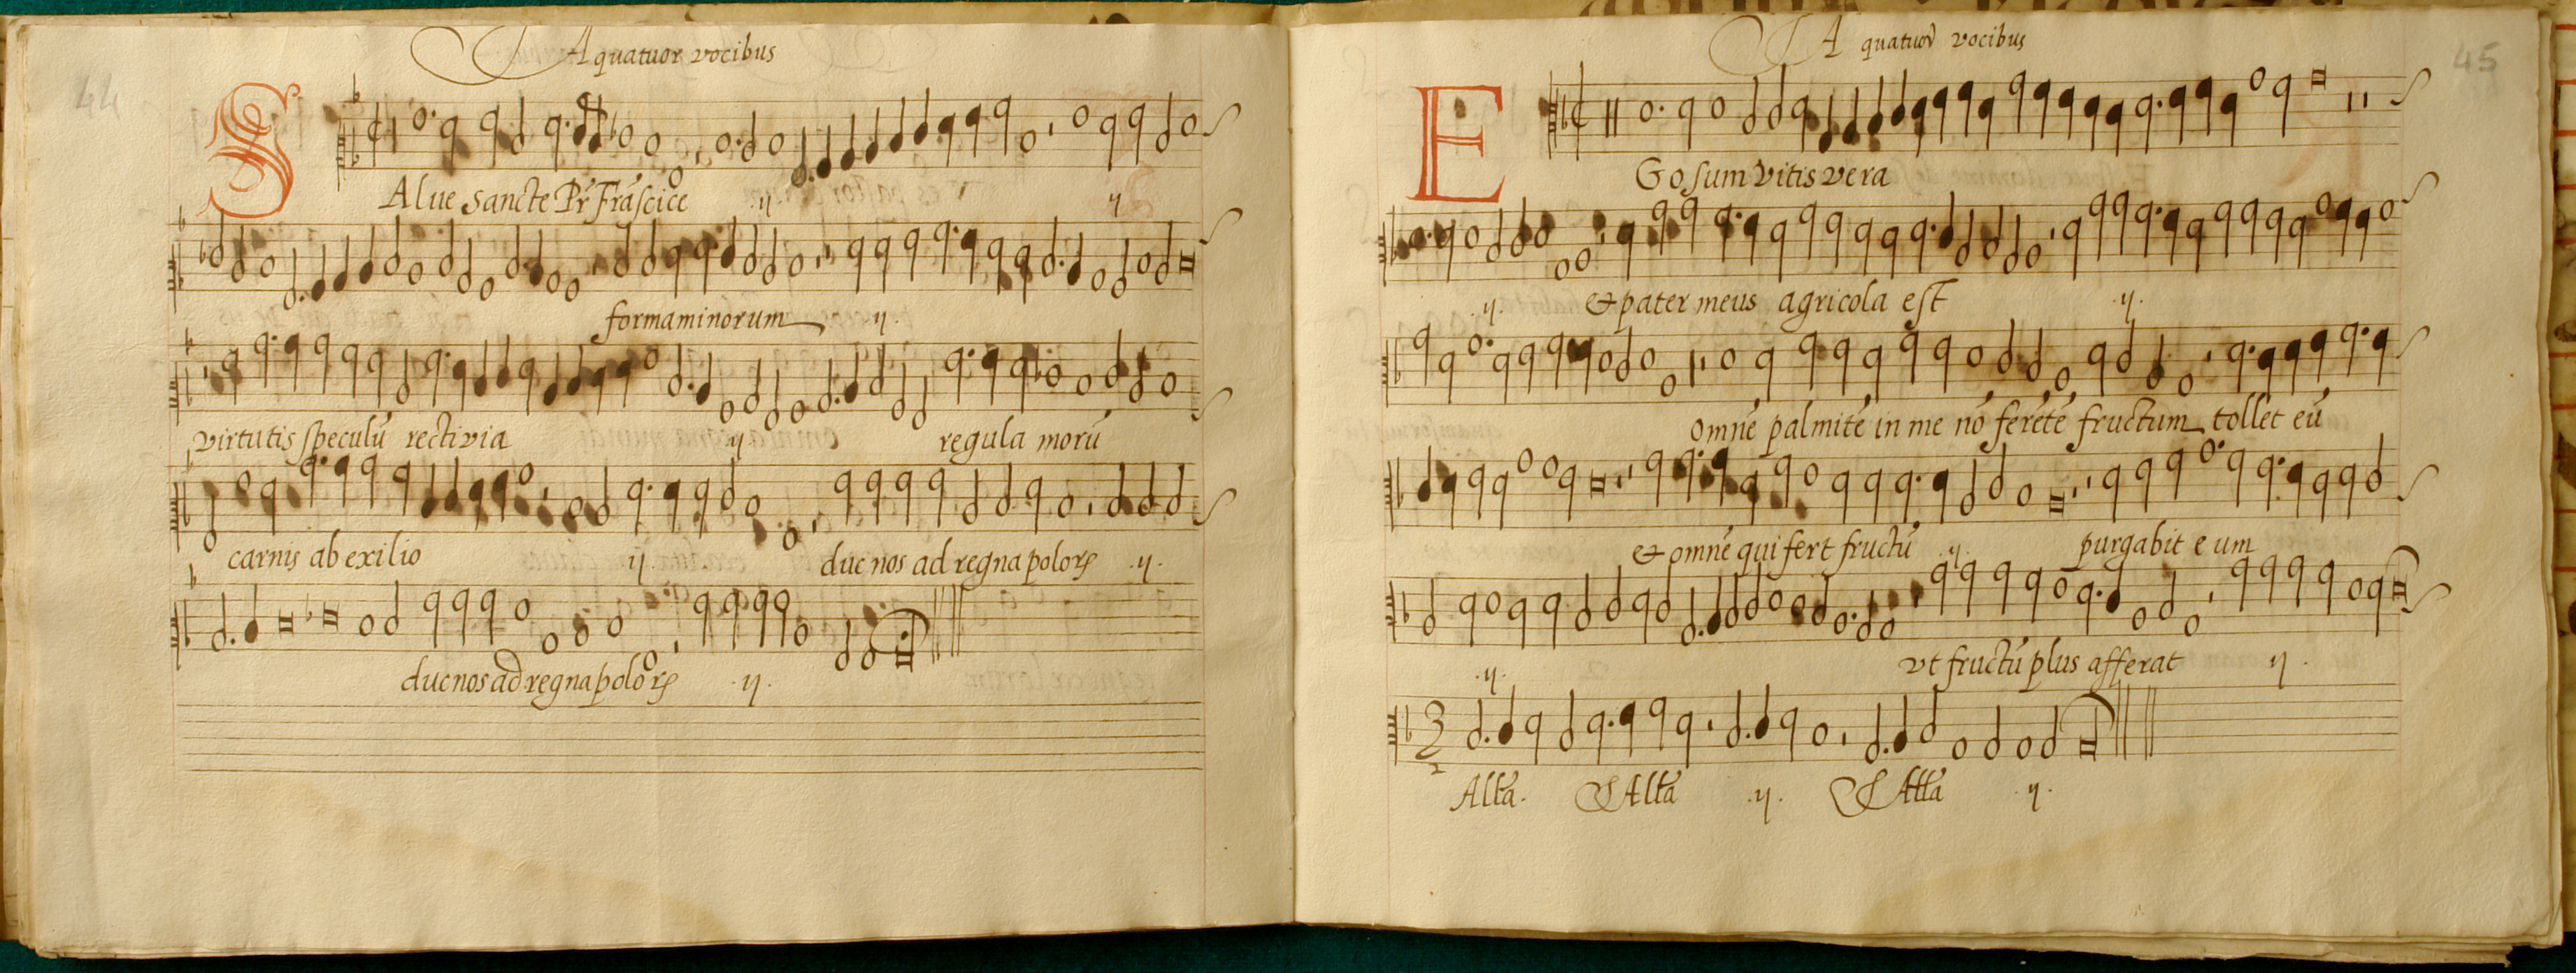 44
A quatuor vocibus
SAlue sancte Pr̃ Frãscice .ij. ij
formaminorum .ij.
virtutis speculũ rectivia ij regula morũ
carnis ab exilio .ij. duc nos ad regna poloꝝ .ij.
duc nos ad regna poloꝝ .ij.
45
A quatuor vocibus
EGo sum vitis vera
.ij. & pater meus agricola est .ij.
omnẽ palmitẽ in me nõ ferẽtẽ fructum tollet eũ
& omnẽ qui fert fructũ .ij. purgabit eum
.ij. vt fructũ plus afferat ij.
3
2
Allã. Allã .ij. Allã .ij.